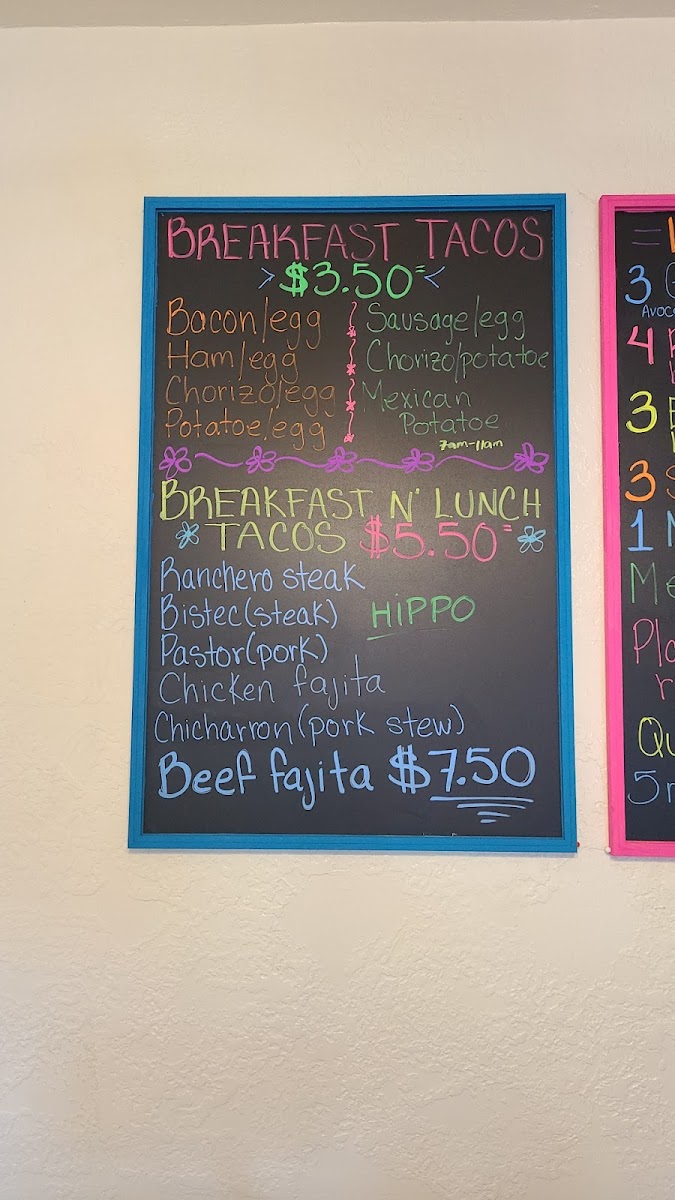 BREAKFAST TACOS
$3.50
Bacon/egg
Ham/egg
Chorizo/egg
Potatoe/egg
Sausage/egg
Chorizo/potatoe
Mexican
Potatoe
7am-11am
BREAKFAST N' LUNCH
TACOS $5.50
Ranchero steak
Bistec(steak)
HiPPO
Pastor(pork)
Chicken fajita
Chicharron(pork stew)
Beef fajita $7.50
3
4
3
3
1